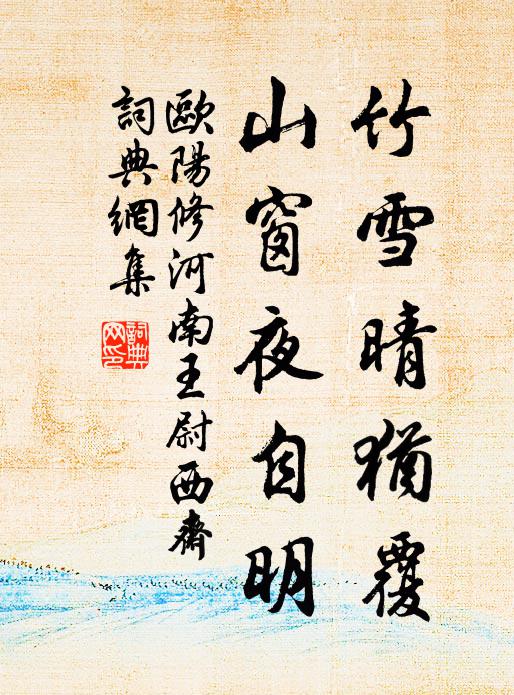 竹雪晴猶覆
山窗夜自明
歐陽修河南王尉西齋
詞典網集
詞典網印